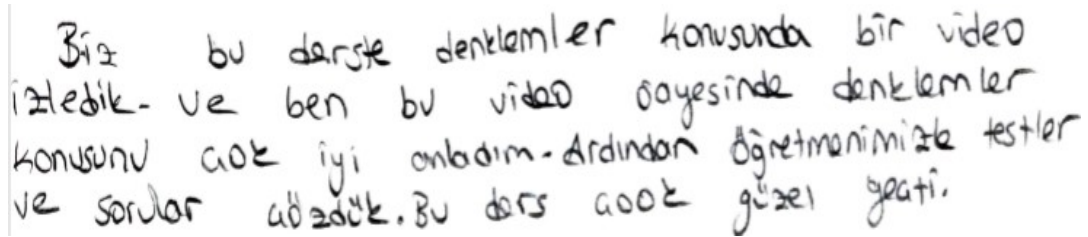 Biz bu derste denklemler konusunda bir video
izledik. ve ben bu video sayesinde denklemler
konusunu çok iyi anladım. Ardından öğretmenimizle testler
ve sorular çözdük. Bu ders çook güzel geçti.